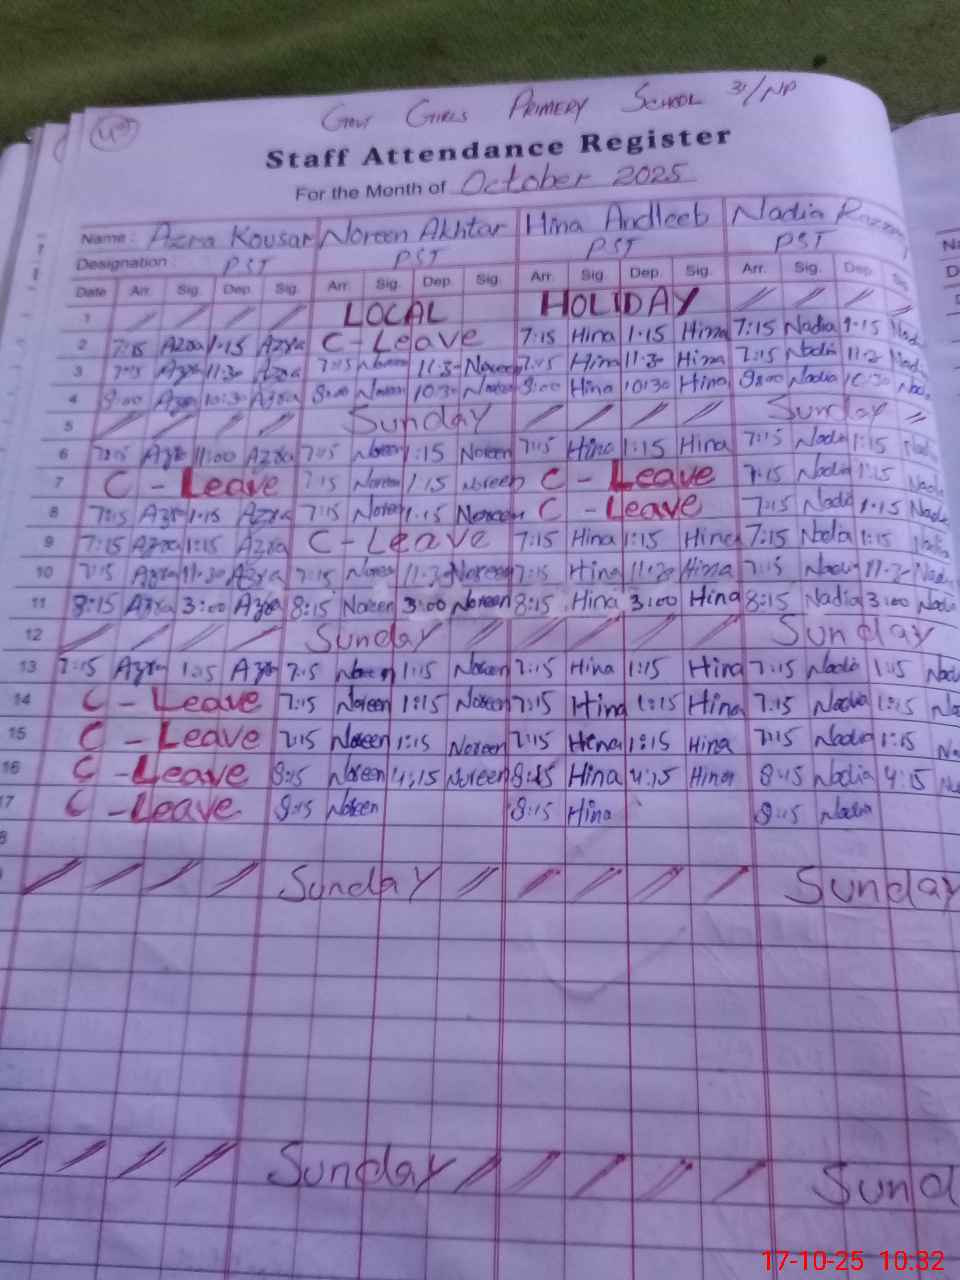 Govt Girls Primery School 31/NP
Staff Attendance Register
For the Month of October 2025
Name: Azra Kousar Noreen Akhtar Hina Andleeb Nadia
Designation: PST PST PST PST
Date Arr. Sig. Dep. Sig. Arr. Sig. Dep. Sig. Arr. Sig. Dep. Sig. Arr. Sig. Dep. Sig.
1 LOCAL HOLIDAY
2 7:15 Azra 1:15 Azra C-Leave 7:15 Hina 1:15 Hina 7:15 Nadia 1:15 Nadi
3 7:15 Azra 11:30 Azra 7:15 Noreen 11:3 Noreen 7:15 Hina 11:30 Hina 7:15 Nadia 11:3 Nadi
4 8:00 Azra 10:30 Azra 8:00 Noreen 10:30 Noreen 8:00 Hina 10:30 Hina 8:00 Nadia 10:30 Nad
5 Sunday Sunday
6 7:15 Azra 11:00 Azra 7:15 Noreen 1:15 Noreen 7:15 Hina 1:15 Hina 7:15 Nadia 1:15 Nadi
7 C-Leave 7:15 Noreen 1:15 Noreen C-Leave 7:15 Nadia 1:15 Nadi
8 7:15 Azra 1:15 Azra 7:15 Noreen 1:15 Noreen C-Leave 7:15 Nadia 1:15 Nadi
9 7:15 Azra 1:15 Azra C-Leave 7:15 Hina 1:15 Hina 7:15 Nadia 1:15 Nadia
10 7:15 Azra 11:30 Azra 7:15 Noreen 11:3 Noreen 7:15 Hina 11:30 Hina 7:15 Nadia 11:3 Nadi
11 8:15 Azra 3:00 Azra 8:15 Noreen 3:00 Noreen 8:15 Hina 3:00 Hina 8:15 Nadia 3:00 Nadi
12 Sunday Sunday
13 7:15 Azra 1:15 Azra 7:15 Noreen 1:15 Noreen 7:15 Hina 1:15 Hina 7:15 Nadia 1:15 Nad
14 C-Leave 7:15 Noreen 1:15 Noreen 7:15 Hina 1:15 Hina 7:15 Nadia 1:15 Na
15 C-Leave 7:15 Noreen 1:15 Noreen 7:15 Hina 1:15 Hina 7:15 Nadia 1:15 Na
16 C-Leave 8:15 Noreen 4:15 Noreen 8:15 Hina 4:15 Hina 8:15 Nadia 4:15 Na
17 C-Leave 8:15 Noreen 8:15 Hina 8:15 Nadia
8
Sunday Sunday
Sunday Sund
17-10-25 10:32